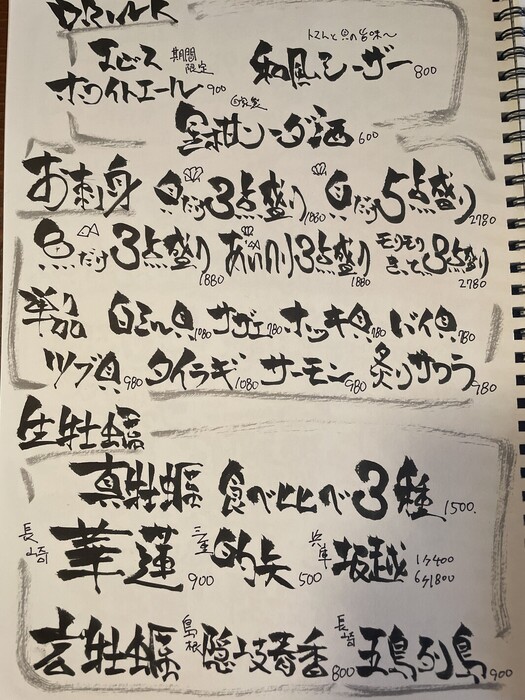 DRINK
エビス 期間限定
ホワイトエール 900
トマトと貝の旨味〜
和風シーザー 800
自家製
金柑シングル酒 600
お刺身 貝だけ3点盛り 1880 貝だけ5点盛り 2780
魚だけ3点盛り 1880 あいのり3点盛り 1880 モリモリ 3点盛り 2780
単品 白ミル貝 1080 サザエ 780 ホッキ貝 780 バイ貝 780
ツブ貝 980 タイラギ 1080 サーモン 980 炙りサワラ 980
生牡蠣
真牡蠣 食べ比べ3種 1500.
長崎 華蓮 900 三重 的矢 500 兵庫 坂越 1ケ400 6ケ1800
岩牡蠣 島根 隠岐春香 800 長崎 五島列島 900